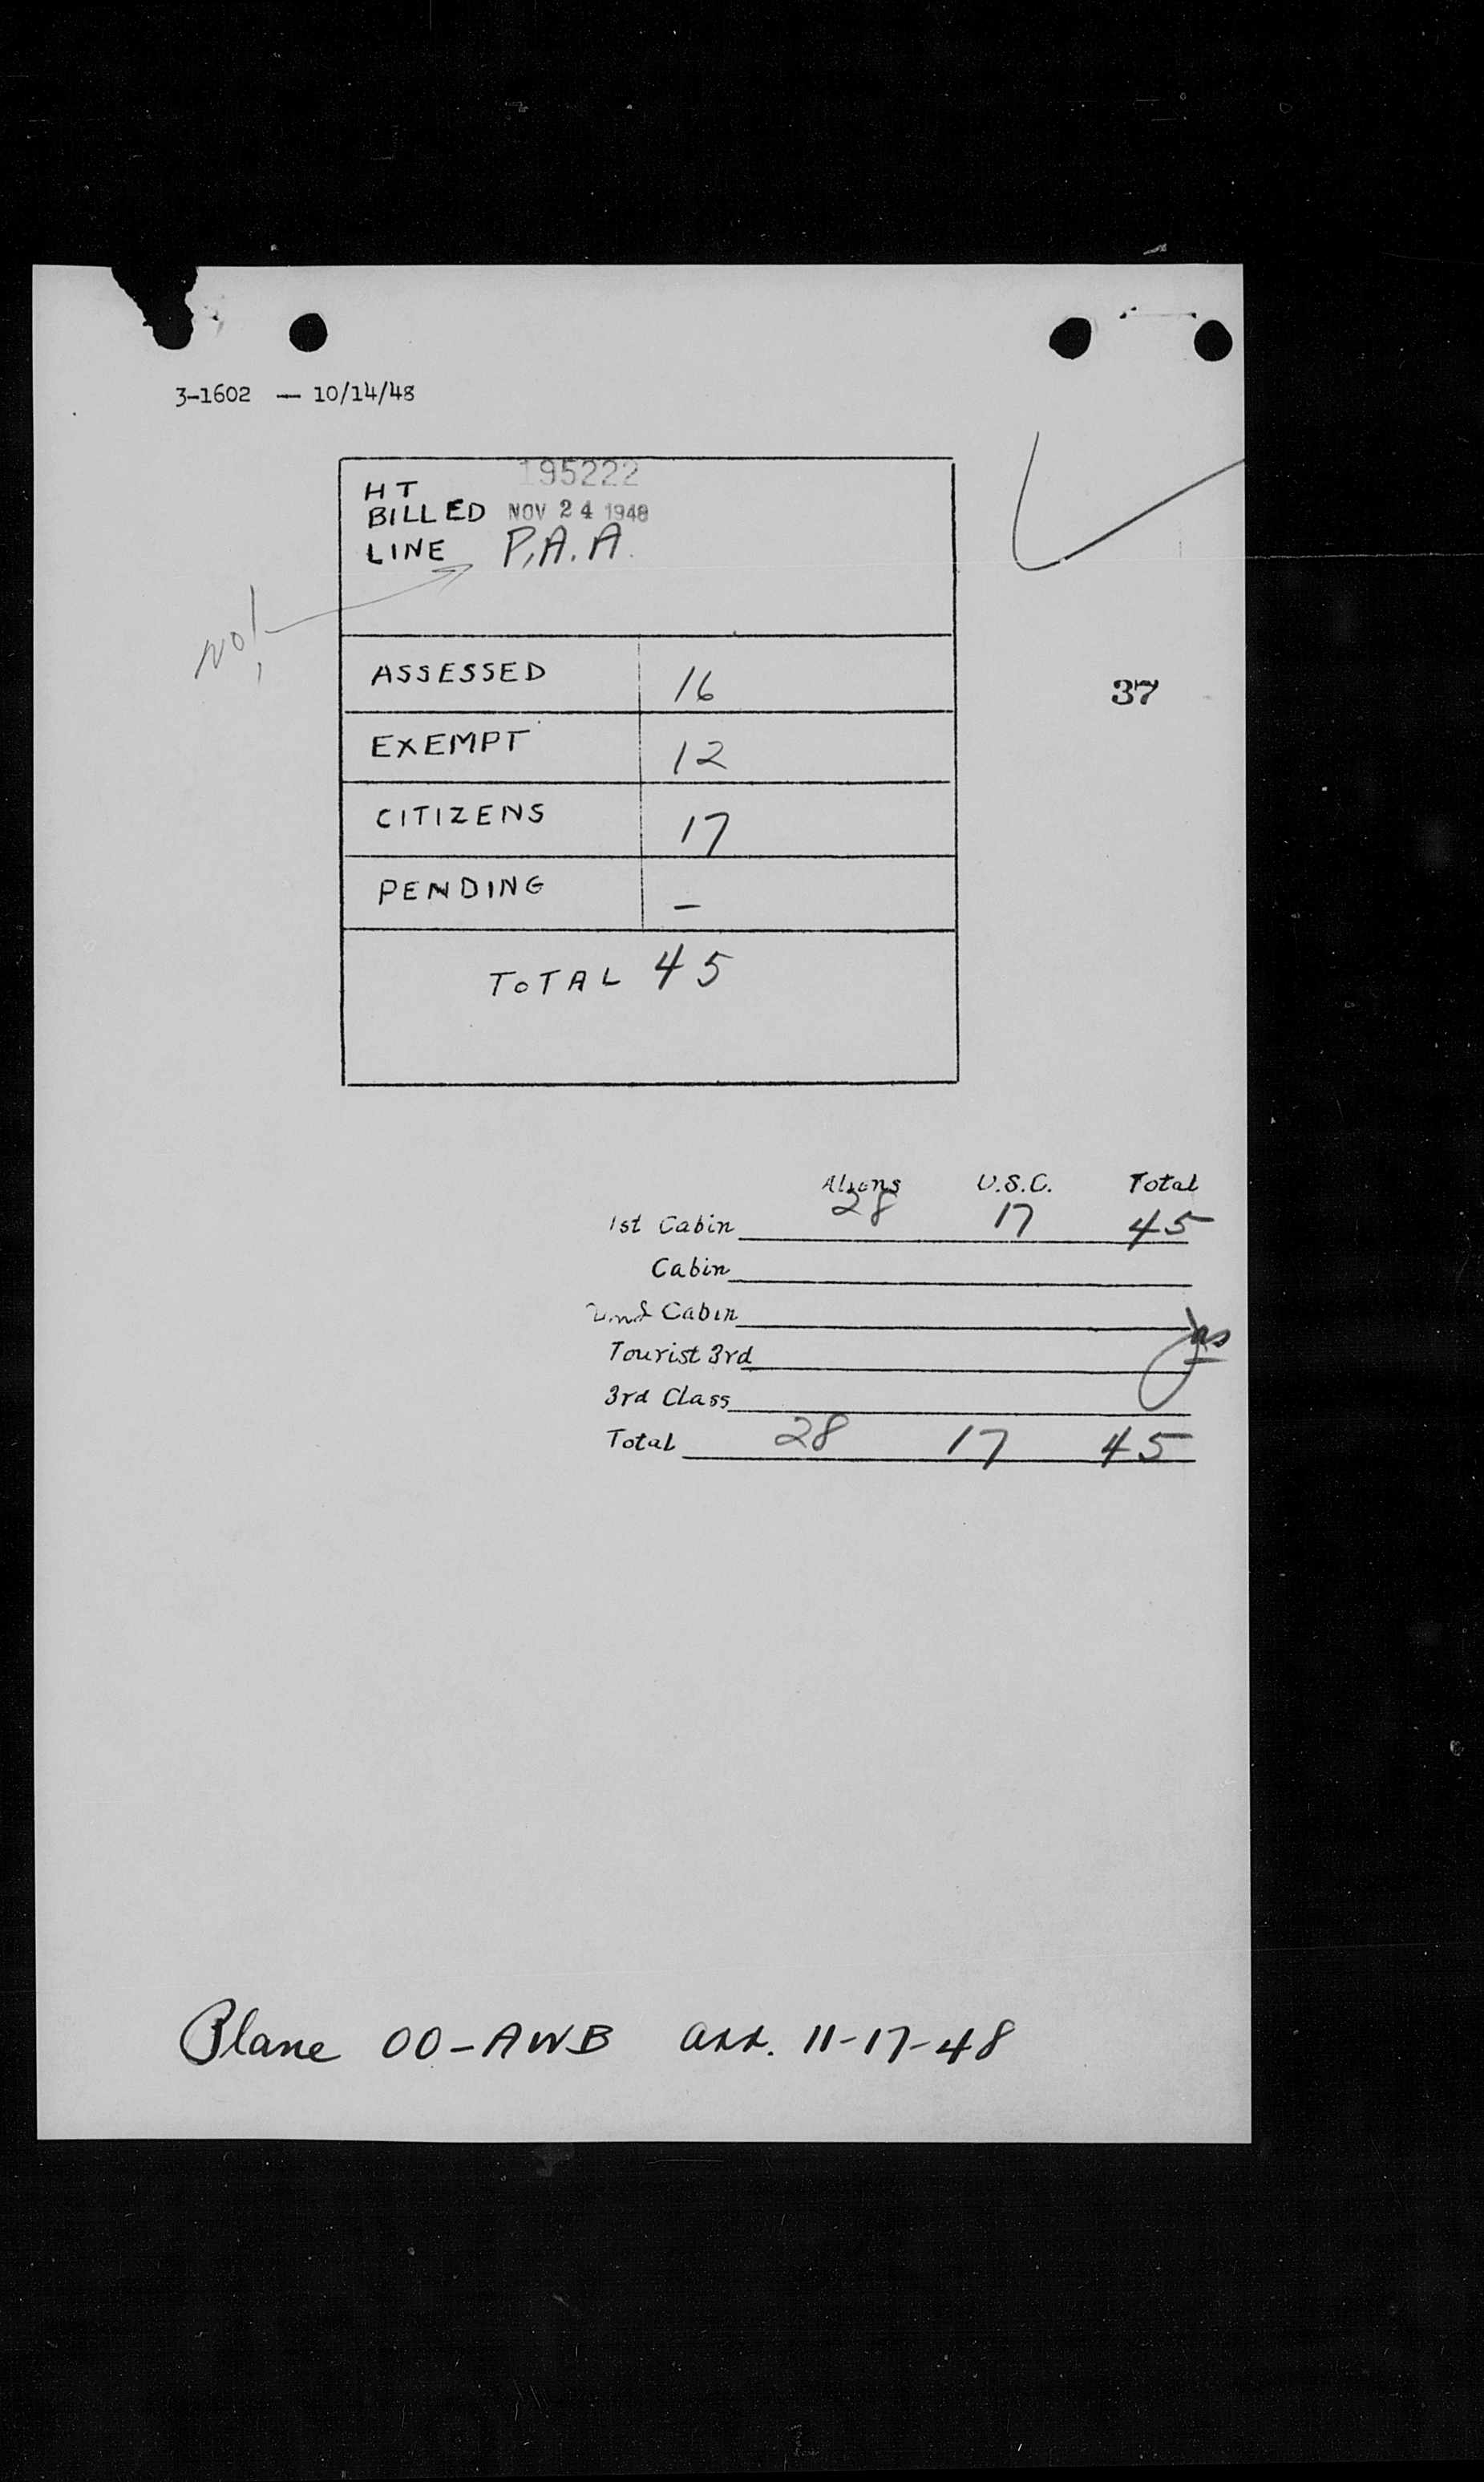 3-1602 — 10/14/48
195222
HT
BILLED NOV 24 1948
LINE P.A.A.
No!
ASSESSED 16
37
EXEMPT 12
CITIZENS 17
PENDING –
TOTAL 45
Aliens U.S.C. Total
1st Cabin 28 17 45
Cabin
2nd Cabin
Tourist 3rd
3rd Class
Total 28 17 45
Plane OO-AWB arr. 11-17-48